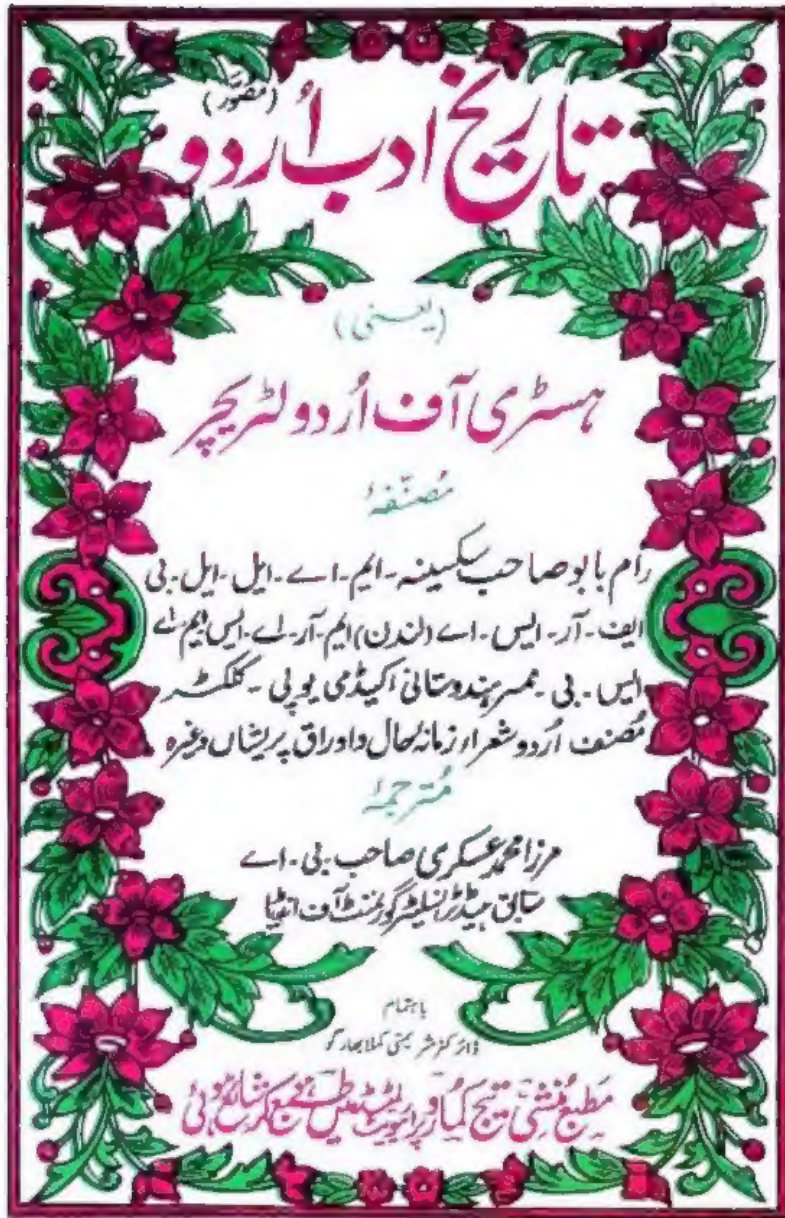 تاریخ ادب اُردو (مصوّر)
(یعنی)
ہسٹری آف اُردو لٹریچر
مُصنّفہٗ
رام بابو صاحب سکسینہ۔ ایم۔ اے۔ ایل۔ ایل۔ بی
ایف۔ آر۔ ایس۔ اے (لندن) ایم۔ آر۔ اے۔ ایس ایم اے
ایس۔ بی۔ ممبر ہندوستانی اکیڈمی یوپی۔ کلکٹر
مُصنف اُردو شعراء زمانۂ حال و اوراق پریشاں وغیرہ
مُترجمہٗ
مرزا محمد عسکری صاحب بی۔ اے
سابق ہیڈ ٹرانسلیٹر گورنمنٹ آف انڈیا
باہتمام
ڈائرکٹر شریمتی کملا بھارگو
مطبع مُنشی تیج کمار پرائیویٹ لمیٹڈ میں طبع ہو کر شائع ہوئی